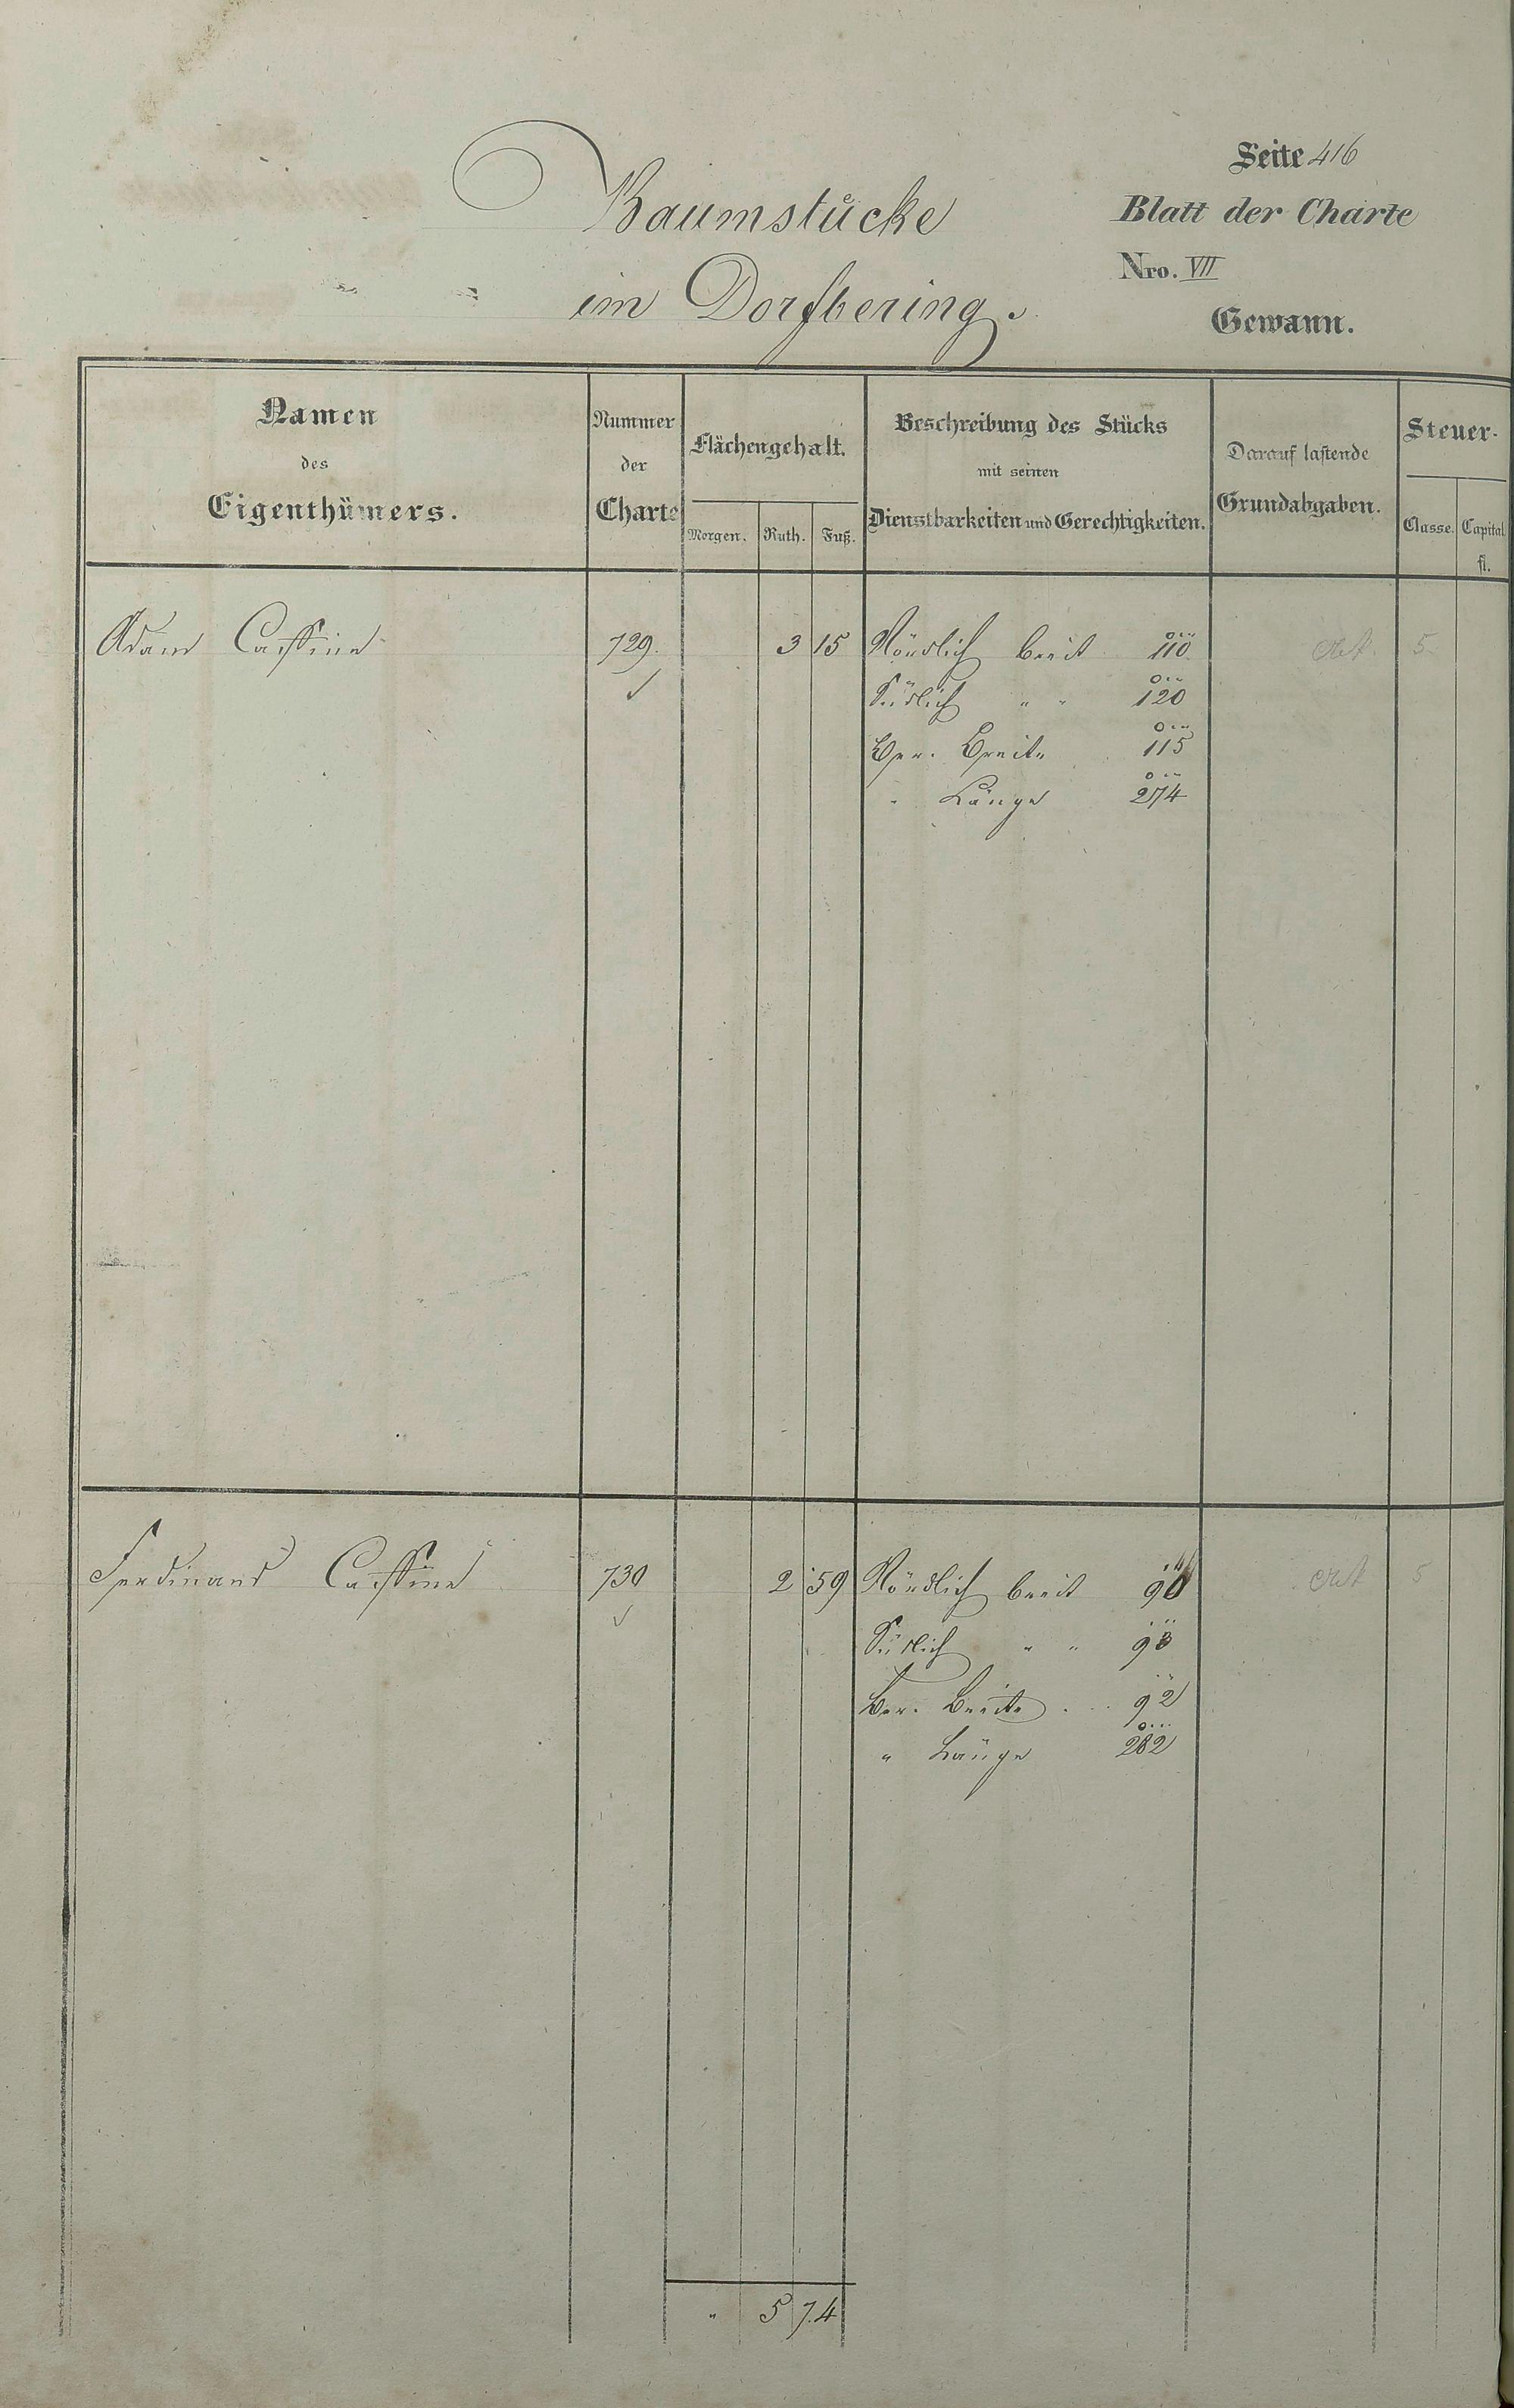 Seite 416
Baumstücke
Blatt der Charte
im Dorfbering.
Nro. VII
Gewann.
Namen
des
Eigenthümers.
Nummer
der
Charte
Flächengehalt.
Morgen. Ruth. Fuß.
Beschreibung des Stücks
mit seinen
Dienstbarkeiten und Gerechtigkeiten.
Darauf lastende
Grundabgaben.
Steuer-
Classe. Capital
fl.
Adam Cassine 729. 3 15 Nördlich breit 110 5
Südlich " " 120
Ber. Breite 115
" Länge 274
Ferdinand Cassine 730 2 59 Nördlich breit 90 5
Südlich " " 93
Ber. Breite 92
" Länge 282
" 5 74